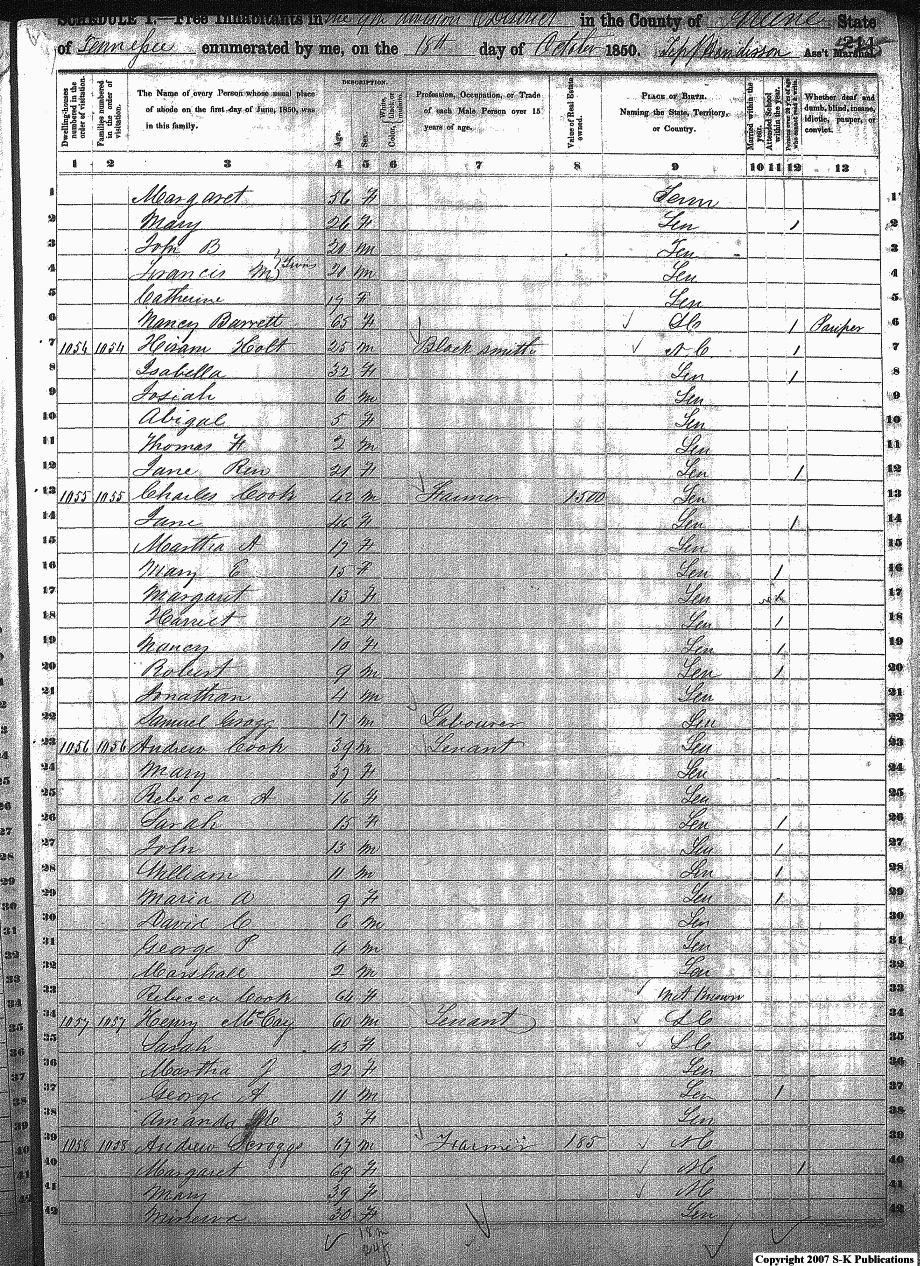 SCHEDULE I.—Free Inhabitants in the 9th Division District in the County of Greene State
of Tennessee enumerated by me, on the 18th day of October 1850. Ass't Marshal.
211
Dwelling-houses numbered in the order of visitation.
Families numbered in the order of visitation.
The Name of every Person whose usual place of abode on the first day of June, 1850, was in this family.
DESCRIPTION.
Age.
Sex.
Color, White, black, or mulatto.
Profession, Occupation, or Trade of each Male Person over 15 years of age.
Value of Real Estate owned.
PLACE OF BIRTH. Naming the State, Territory, or Country.
Married within the year.
Attended School within the year.
Persons over 20 y'rs of age who cannot read & write.
Whether deaf and dumb, blind, insane, idiotic, pauper, or convict.
1 2 3 4 5 6 7 8 9 10 11 12 13
1 Margaret 56 F Tenn 1
2 Mary 26 F Ten 1 2
3 John B 20 m Ten 3
4 Francis M } Twins 20 m Ten 4
5 Catherine 17 F Ten 5
6 Nancy Barrett 65 F SC 1 Pauper 6
7 1054 1054 Hiram Holt 25 m Black smith NC 1 7
8 Isabella 32 F Ten 1 8
9 Josiah 6 m Ten 9
10 Abigal 5 F Ten 10
11 Thomas F 2 m Ten 11
12 Jane Ren 21 F Ten 1 12
13 1055 1055 Charles Cook 42 m Farmer 1500 Ten 13
14 Jane 46 F Ten 1 14
15 Martha A 17 F Ten 15
16 Mary E 15 F Ten 1 16
17 Margaret 13 F Ten 17
18 Harriet 12 F Ten 1 18
19 Nancy 10 F Ten 1 19
20 Robert 9 m Ten 1 20
21 Jonathan 4 m Ten 21
22 Samuel Gragg 17 m Labourer Ten 22
23 1056 1056 Andrew Cook 39 m Tenant Ten 23
24 Mary 37 F Ten 24
25 Rebecca A 16 F Ten 25
26 Sarah 15 F Ten 1 26
27 John 13 m Ten 1 27
28 William 11 m Ten 1 28
29 Maria A 9 F Ten 1 29
30 David C 6 m Ten 30
31 George P 4 m Ten 31
32 Marshall 2 m Ten 32
33 Rebecca Cook 64 F Not Known 33
34 1057 1057 Henry McCay 60 m Tenant SC 34
35 Sarah 43 F SC 35
36 Martha J 22 F Ten 36
37 George A 11 m Ten 1 37
38 Amanda 3 F Ten 38
39 1058 1058 Andrew Scroggs 17 m Farmer 185 NC 39
40 Margaret 69 F NC 1 40
41 Mary 39 F NC 41
42 Minerva 30 F Ten 42
18 m
24 f
Copyright 2007 S-K Publications